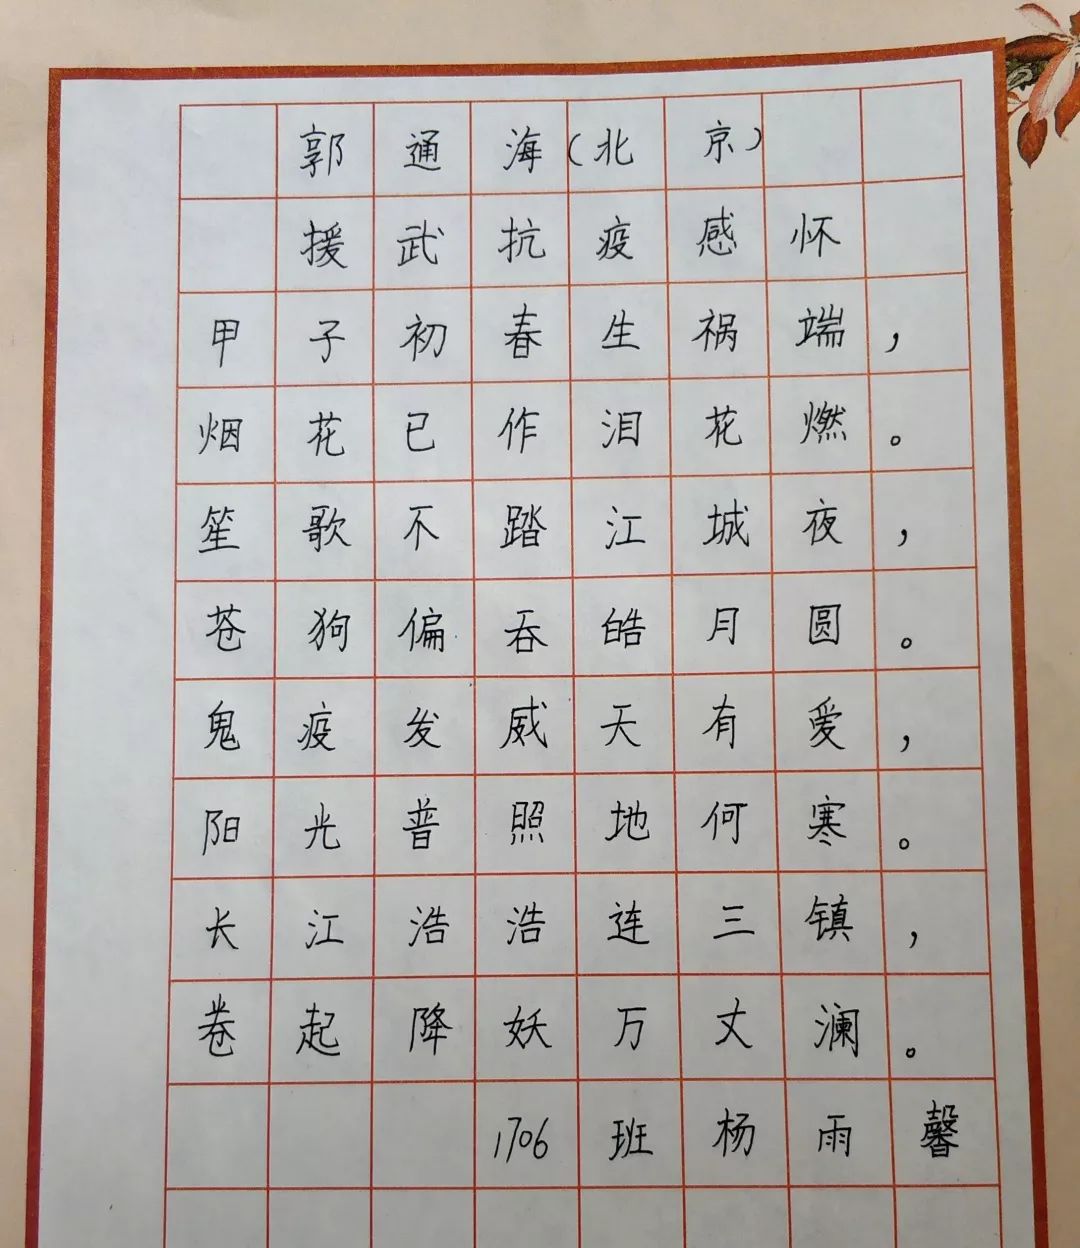 郭通海(北京)
援武抗疫感怀
甲子初春生祸端，
烟花已作泪花燃。
笙歌不踏江城夜，
苍狗偏吞皓月圆。
鬼疫发威天有爱，
阳光普照地何寒。
长江浩浩连三镇，
卷起降妖万丈澜。
1706班杨雨馨